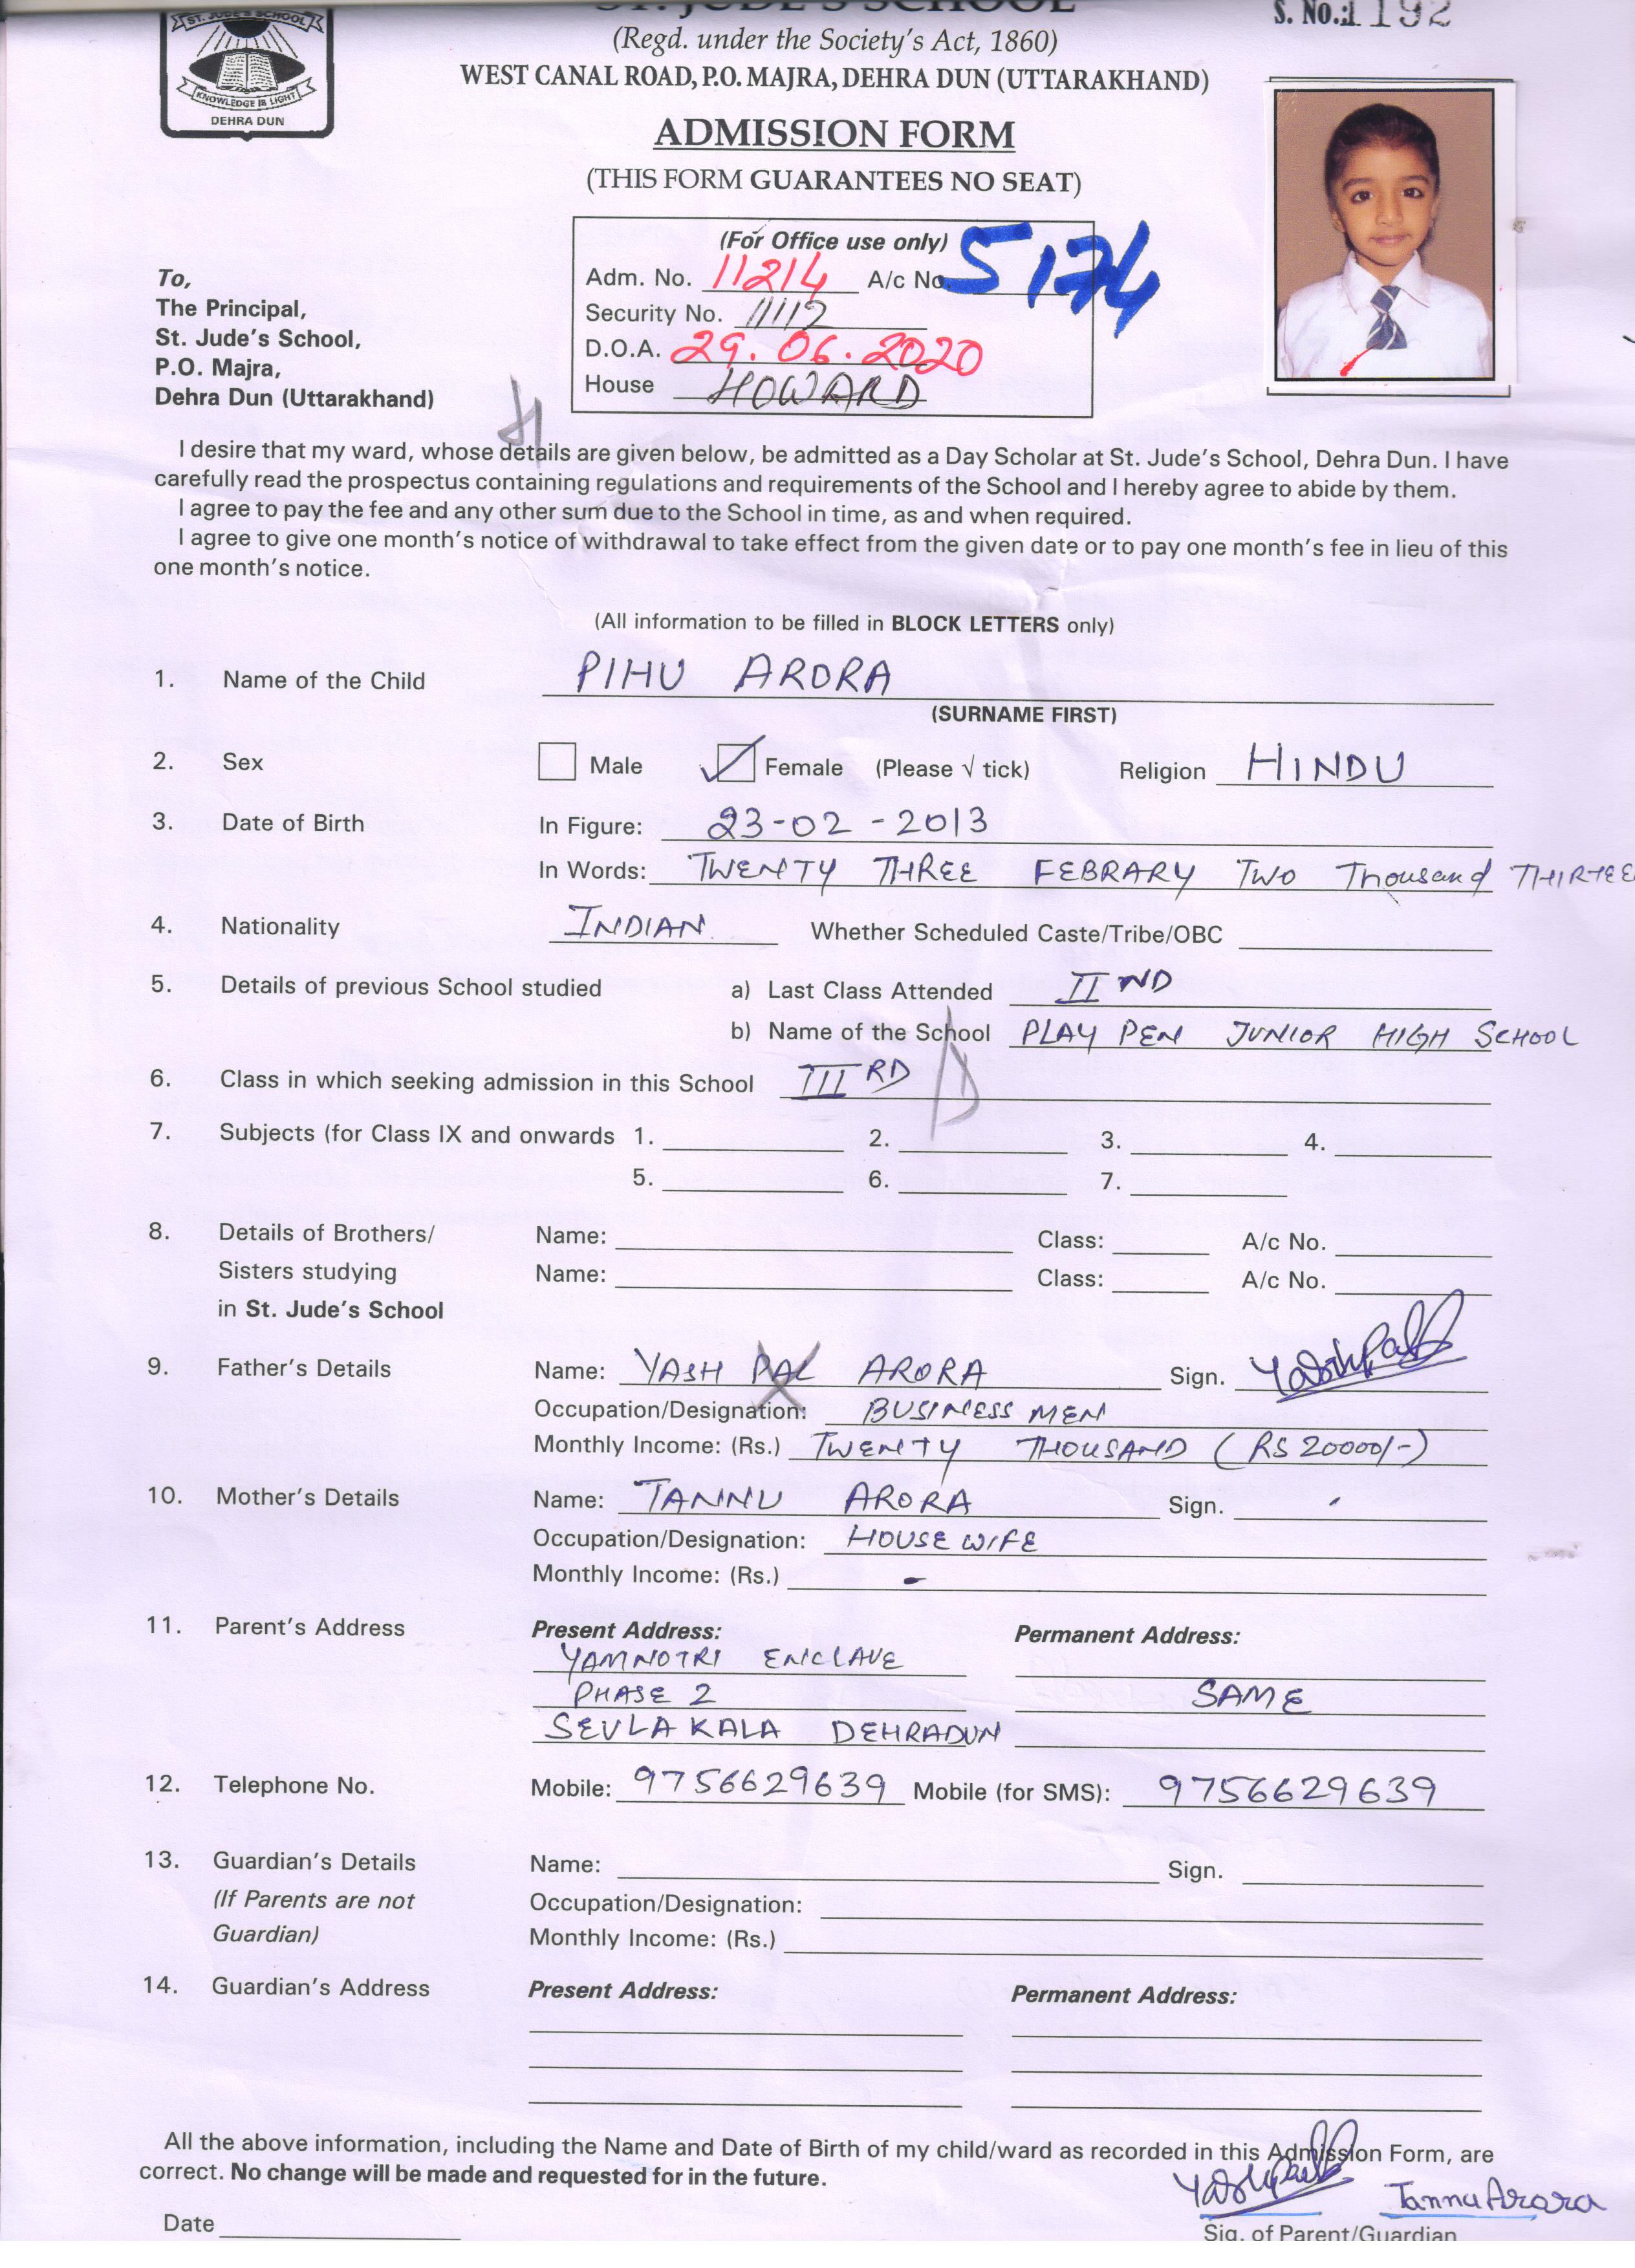 ST. JUDE'S SCHOOL
S. No.: 1192
(Regd. under the Society's Act, 1860)
WEST CANAL ROAD, P.O. MAJRA, DEHRA DUN (UTTARAKHAND)
ST. JUDE'S SCHOOL
KNOWLEDGE IS LIGHT
DEHRA DUN
ADMISSION FORM
(THIS FORM GUARANTEES NO SEAT)
(For Office use only)
Adm. No. 11214 A/c No. 5174
Security No. 11112
D.O.A. 29.06.2020
House HOWARD
To,
The Principal,
St. Jude's School,
P.O. Majra,
Dehra Dun (Uttarakhand)
I desire that my ward, whose details are given below, be admitted as a Day Scholar at St. Jude's School, Dehra Dun. I have
carefully read the prospectus containing regulations and requirements of the School and I hereby agree to abide by them.
I agree to pay the fee and any other sum due to the School in time, as and when required.
I agree to give one month's notice of withdrawal to take effect from the given date or to pay one month's fee in lieu of this
one month's notice.
(All information to be filled in BLOCK LETTERS only)
1. Name of the Child PIHU ARORA
(SURNAME FIRST)
2. Sex Male Female (Please √ tick) Religion HINDU
3. Date of Birth In Figure: 23-02-2013
In Words: TWENTY THREE FEBRARY TWO Thousand THIRTEE
4. Nationality INDIAN Whether Scheduled Caste/Tribe/OBC
5. Details of previous School studied a) Last Class Attended II ND
b) Name of the School PLAY PEN JUNIOR HIGH SCHOOL
6. Class in which seeking admission in this School III RD
7. Subjects (for Class IX and onwards 1. 2. 3. 4.
5. 6. 7.
8. Details of Brothers/ Name: Class: A/c No.
Sisters studying Name: Class: A/c No.
in St. Jude's School
9. Father's Details Name: YASH PAL ARORA Sign. Yashpal
Occupation/Designation: BUSINESS MEN
Monthly Income: (Rs.) TWENTY THOUSAND (RS 20000/-)
10. Mother's Details Name: TANNU ARORA Sign.
Occupation/Designation: HOUSE WIFE
Monthly Income: (Rs.) -
11. Parent's Address Present Address: Permanent Address:
YAMNOTRI ENCLAVE
PHASE 2 SAME
SEVLA KALA DEHRADUN
12. Telephone No. Mobile: 9756629639 Mobile (for SMS): 9756629639
13. Guardian's Details Name: Sign.
(If Parents are not Occupation/Designation:
Guardian) Monthly Income: (Rs.)
14. Guardian's Address Present Address: Permanent Address:
All the above information, including the Name and Date of Birth of my child/ward as recorded in this Admission Form, are
correct. No change will be made and requested for in the future.
Yashpal Tannu Arora
Date Sig. of Parent/Guardian